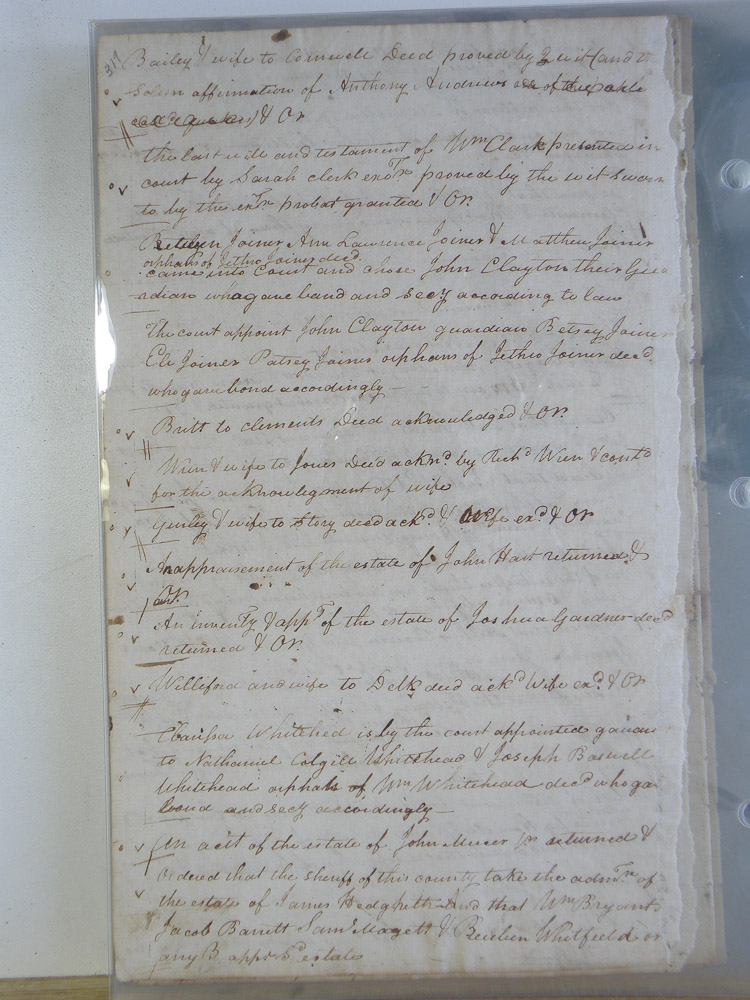 317
Bailey & wife to Cornwell Deed proved by 2 wit & and
Solem affirmation of Anthony Andrews one of the people
called quakers) & Or
the last will and testament of Wm. Clark presented in
court by Sarah Clerk exoTx proved by the wit sworn
to by the exTx probat granted & Or.
Joiner Ann Lawrence Joiner & Matthew Joiner
orphans of Jethro Joiner decd.
came into Court and chose John Clayton their Gua
rdian who gave band and secy according to law
The court appoint John Clayton guardian Betsey Joiner
Eli Joiner Patsey Joiner orphans of Jethro Joiner decd.
who gave bond accordingly —
Britt to Clements Deed acknowledged & Or.
& wife to Jones Deed acknd. by Richd & contd
for the acknowlegment of wife
Gurley & wife to Story deed ackd. & Wife exd. & Or
An appraisement of the estate of John Hart returned &
Or.
An inventy & appT of the estate of Joshua Gardner decd
returned & Or.
Williford and wife to Delk deed ackd Wife exd. & Or
Whitehed is by the court appointed
to Nathaniel Colgill Whitehead & Joseph Boswell
Whitehead orphals of Wm Whitehead decd who ga
bond and secy accordingly —
An acct of the estate of John returned &
Ordered that the sheriff of this county take the admTn of
the estate of James Hedgpeth And that Wm Bryant
Jacob Barrett Saml Magett & Reuben Whitfield or
any 3 appr sd estate